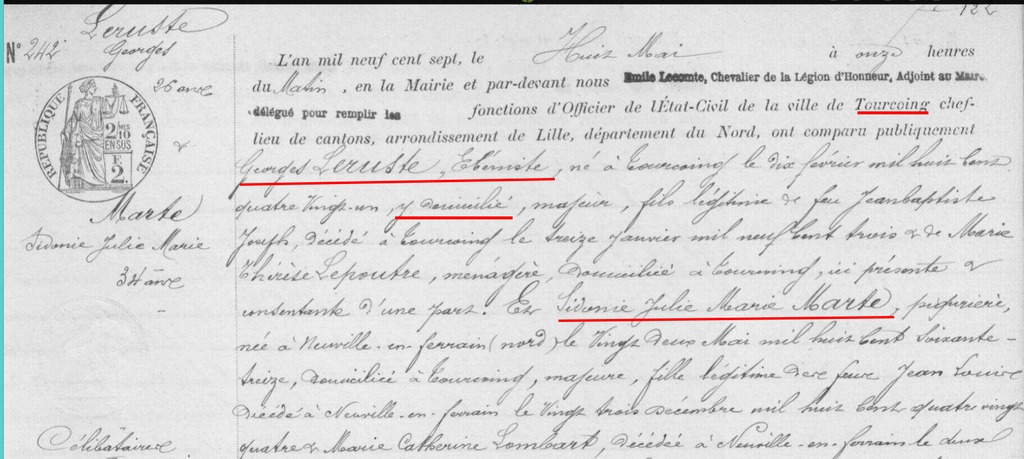 122
Leruste
Georges
N° 242
26 ans
&
RÉPUBLIQUE FRANÇAISE
2 DMES
10
EN SUS
F.
2.
Marte
Sidonie Julie Marie
34 ans
Célibataires
L'an mil neuf cent sept, le Huit Mai à onze heures
du Matin, en la Mairie et par-devant nous Emile Lecomte, Chevalier de la Légion d'Honneur, Adjoint au Maire
délégué pour remplir les fonctions d'Officier de l'État-Civil de la ville de Tourcoing chef-
lieu de cantons, arrondissement de Lille, département du Nord, ont comparu publiquement
Georges Leruste, Ebéniste, né à Tourcoing le dix février mil huit cent
quatre Vingt-un, y domicilié, majeur, fils légitime de feu Jeanbaptiste
Joseph, décédé à Tourcoing le treize Janvier mil neuf Cent trois & de Marie
Thérèse Lepoutre, ménagère, domiciliée à Tourcoing, ici présente &
consentante d'une part. Et Sidonie Julie Marie Marte, piqurière,
née à Neuville-en-ferrain (nord) le Vingt deux Mai mil huit Cent Soixante-
treize, domiciliée à Tourcoing, majeure, fille légitime de feu Jean Louis
décédé à Neuville-en-ferrain le Vingt trois décembre mil huit Cent quatre vingt
quatre & Marie Catherine Lombart, décédée à Neuville-en-ferrain le deux